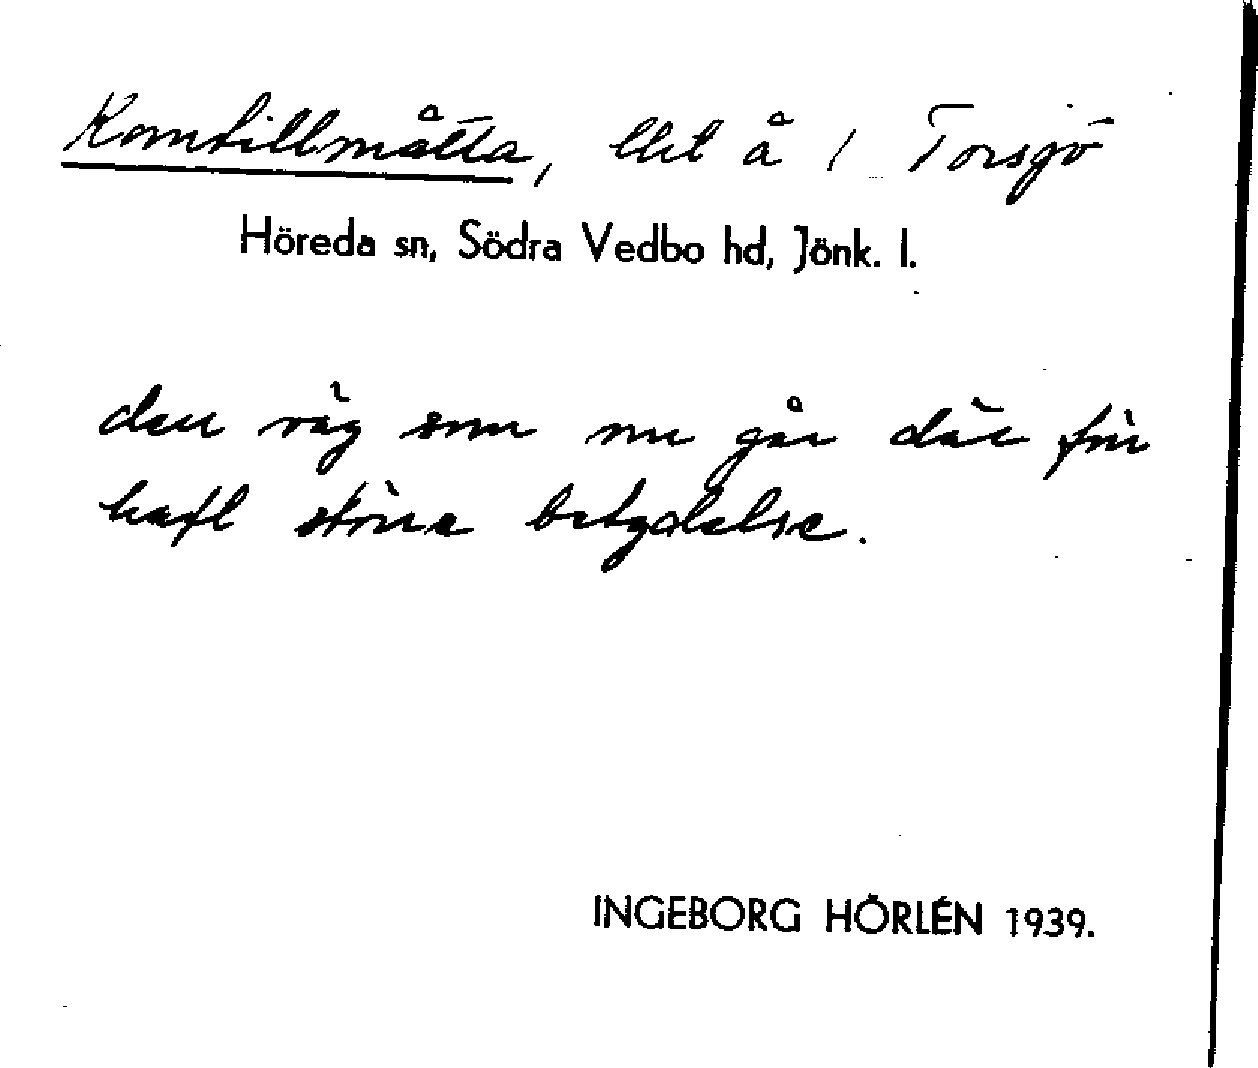 Komtillmåtta, litet å / Torsjö
Höreda sn, Södra Vedbo hd, Jönk. l.
den väg som nu går där förr
haft större betydelse.
INGEBORG HÖRLÉN 1939.